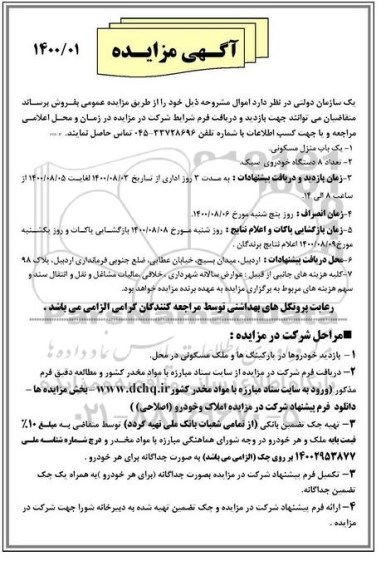 آگهی مزایده
۱۴۰۰/۰۱
یک سازمان دولتی در نظر دارد اموال مشروحه ذیل خود را از طریق مزایده عمومی بفروش برساند
متقاضیان می توانند جهت بازدید و دریافت فرم شرایط شرکت در مزایده در زمان و محل اعلامی
مراجعه و یا جهت کسب اطلاعات با شماره تلفن ۳۳۷۲۸۶۹۶-۰۴۵ تماس حاصل نمایند.
۱- یک باب منزل مسکونی.
۲- تعداد ۸ دستگاه خودروی سبک.
۳-زمان بازدید و دریافت پیشنهادات : به مدت ۳ روز اداری از تاریخ ۱۴۰۰/۰۸/۰۳ لغایت ۱۴۰۰/۰۸/۰۵ از
ساعت ۸ الی ۱۴.
۴-زمان انصراف : روز پنج شنبه مورخ ۱۴۰۰/۰۸/۰۶.
۵-زمان بازگشایی پاکات و اعلام نتایج : روز شنبه مورخ ۱۴۰۰/۰۸/۰۸ بازگشایی پاکات و روز یکشنبه
مورخ ۱۴۰۰/۰۸/۰۹ اعلام نتایج برندگان .
۶-محل دریافت پیشنهادات : اردبیل، میدان بسیج، خیابان عطایی، ضلع جنوبی فرمانداری اردبیل، پلاک ۹۸
۷-کلیه هزینه های جانبی از قبیل : عوارض سالانه شهرداری ،خلافی ،مالیات مشاغل و نقل و انتقال سند و
سهم هزینه های مربوط به برگزاری مزایده به عهده برنده مزایده خواهد بود.
رعایت پروتکل های بهداشتی توسط مراجعه کنندگان گرامی الزامی می باشد .
■مراحل شرکت در مزایده :
۱- بازدید خودروها در پارکینگ ها و ملک مسکونی در محل.
۲- دریافت فرم شرکت در مزایده از سایت ستاد مبارزه با مواد مخدر کشور و مطالعه دقیق فرم
مذکور (ورود به سایت ستاد مبارزه با مواد مخدر کشور www.dchq.ir – بخش مزایده ها –
دانلود فرم پیشنهاد شرکت در مزایده املاک وخودرو (اصلاحی))
۳- تهیه چک تضمین بانکی (از تمامی شعبات بانک ملی تهیه گردد) توسط متقاضی به مبلغ ۱۰٪
قیمت پایه ملک و هر خودرو در وجه شورای هماهنگی مبارزه با مواد مخدر و درج شماره شناسه ملی
۱۴۰۰۲۹۵۳۸۷۷ بر روی چک (الزامی می باشد) به صورت جداگانه برای هر خودرو .
۳- تکمیل فرم پیشنهاد شرکت در مزایده بصورت جداگانه (برای هر خودرو )به همراه یک چک
تضمین جداگانه.
۴- ارائه فرم پیشنهاد شرکت در مزایده و چک تضمین تهیه شده به دبیرخانه شورا جهت شرکت در
مزایده .